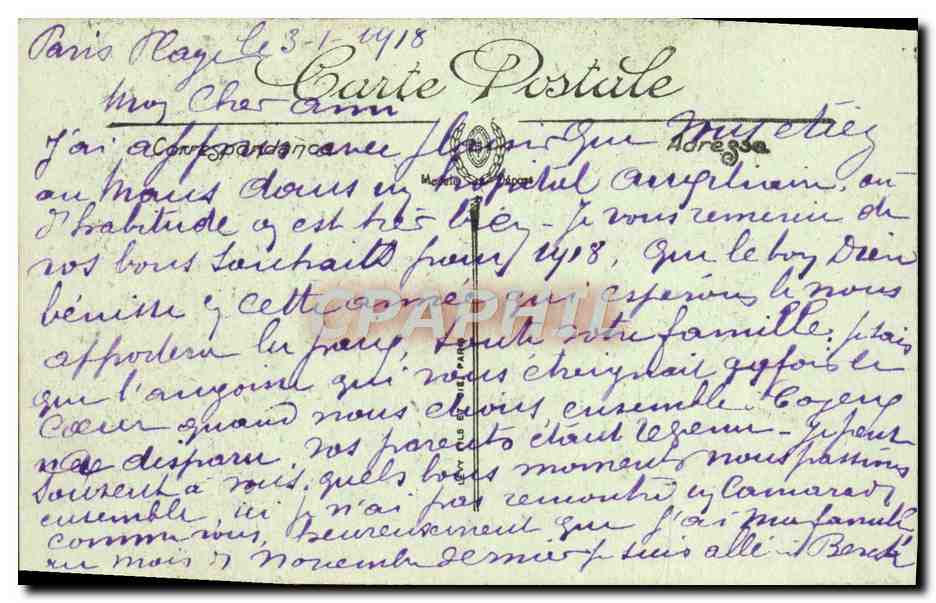 Paris Plage le 3-1-1918
Carte Postale
Mon Cher ami
Correspondance
Adresse
J'ai appris avec plaisir que vous étiez
au Mans dans un hôpital américain, où
d'habitude on est très bien - Je vous remercie de
vos bons souhaits pour 1918, que le bon Dieu
bénisse cette année qui espérons le nous
apportera la paix, toute votre famille. Je sais
que l'angoisse qui vous étreignait qqfois le
Cœur quand nous étions ensemble à
disparu, vos parents étant - Je pense
souvent à vous, quels bons moments nous passions
ensemble, ici je n'ai pas rencontré un Camarade
comme vous, heureusement que j'ai ma famille
au mois de Novembre dernier je suis allé à Berck
LEVY FILS ET CIE, PARIS
CPAPHIL